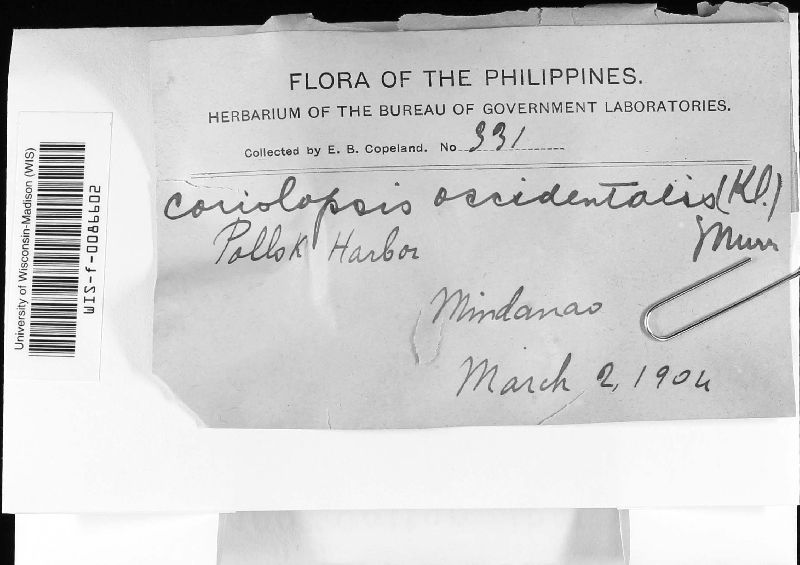 FLORA OF THE PHILIPPINES.
HERBARIUM OF THE BUREAU OF GOVERNMENT LABORATORIES.
Collected by E. B. Copeland. No. 331
Coriolopsis occidentalis (Kl.)
Murr
Pollok Harbor
Mindanao
March 2, 1904
University of Wisconsin-Madison (WIS)
WIS-f-0086602